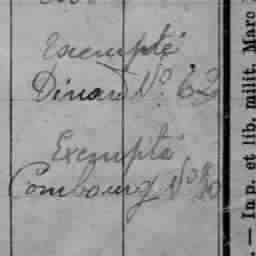 Exempté
Dinard No 62
Exempté
Combourg No
— In p. et lib. milit. Marc